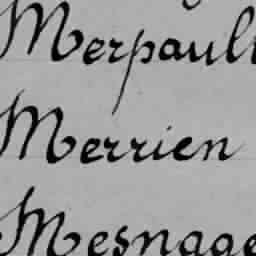 Merpault
Merrien
Mesnage